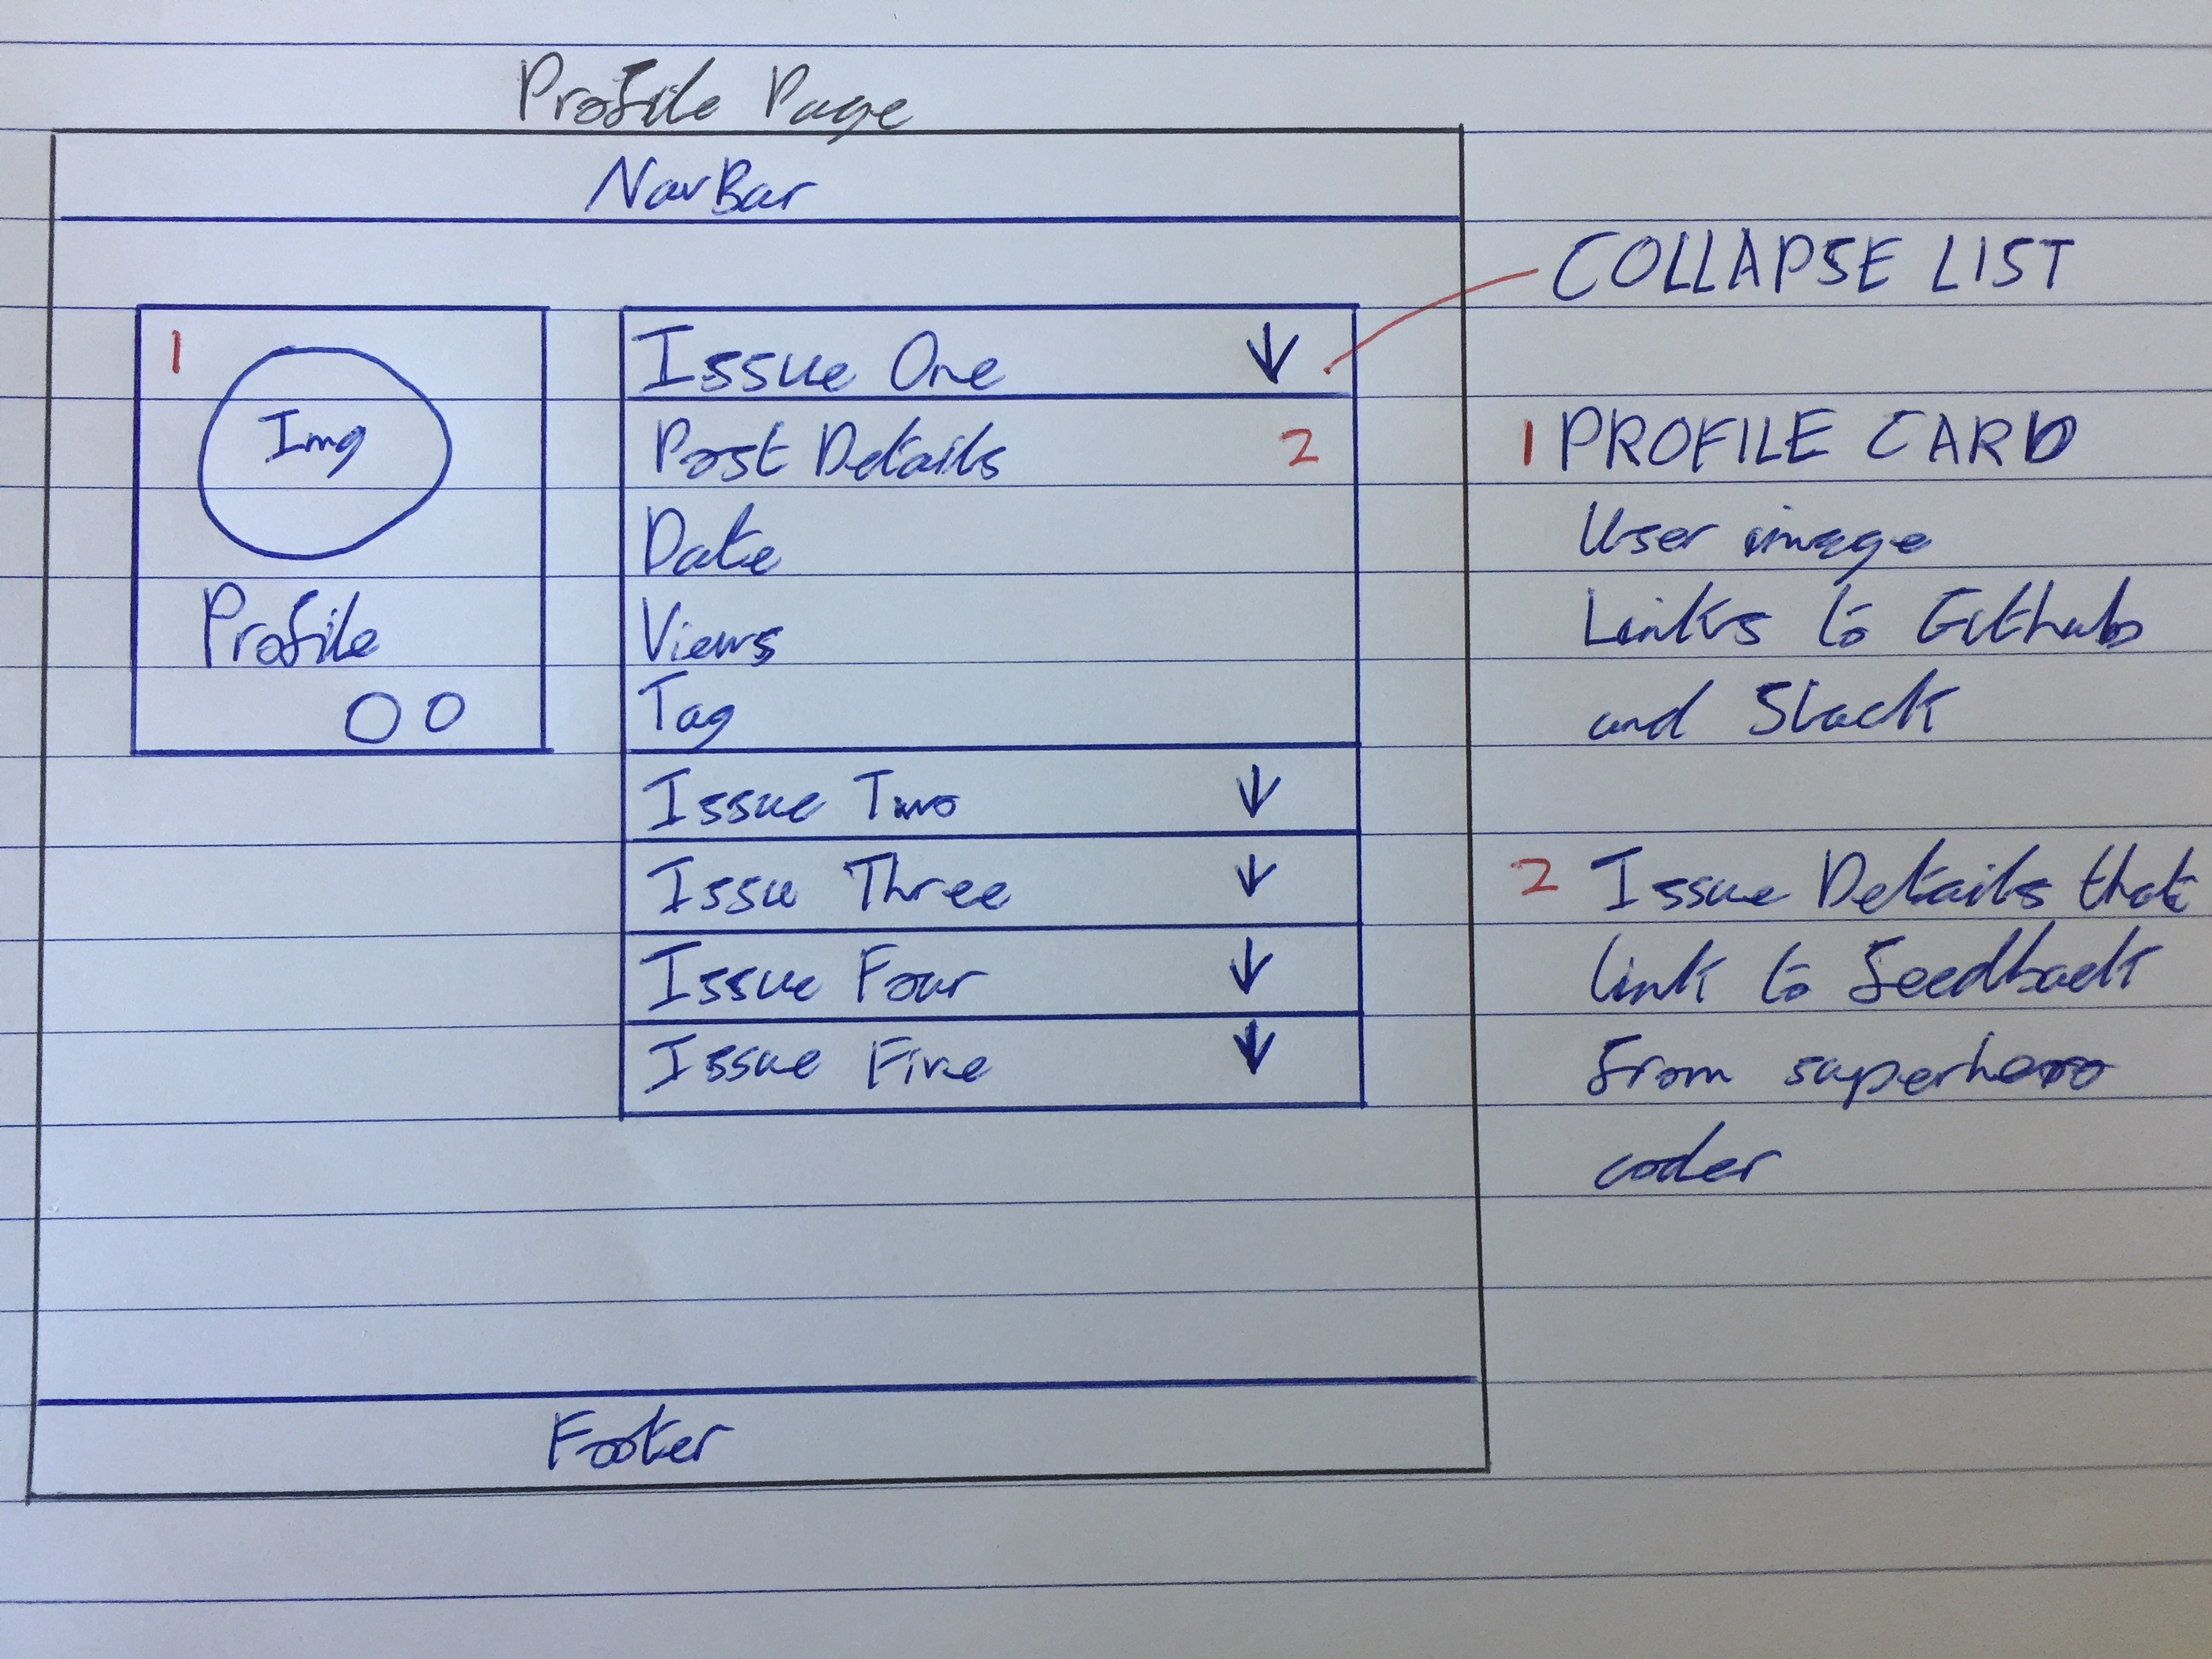 Profile Page
NavBar
COLLAPSE LIST
1
Img
Profile
Issue One
Post Details 2
Date
Views
Tag
Issue Two
Issue Three
Issue Four
Issue Five
1 PROFILE CARD
User image
Links to Github
and Slack
2 Issue Details that
link to feedback
from superhero
coder
Footer